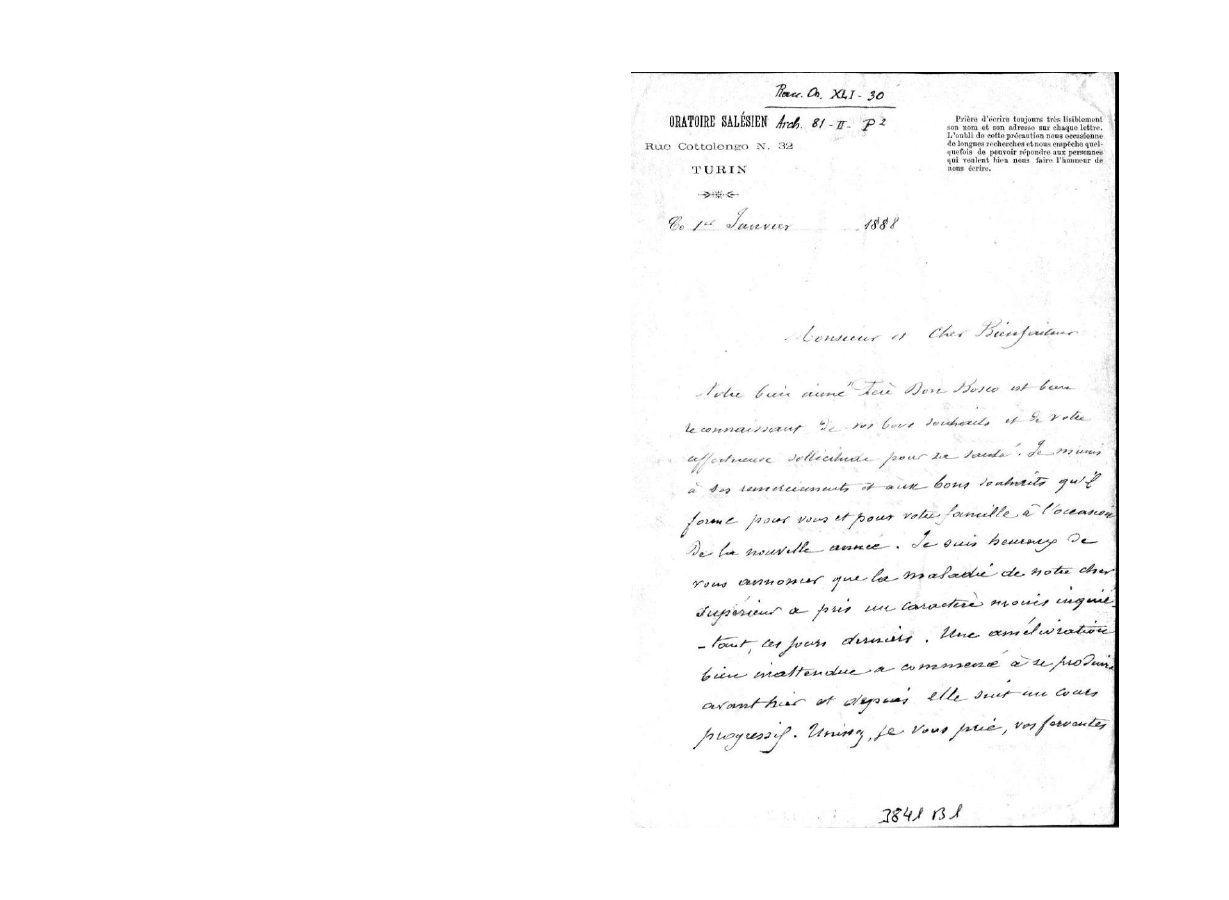 Arch. 81-II-P2
XLI-30
ORATOIRE SALÉSIEN
Rue Cottolengo N. 32
TURIN
Prière d'écrire toujours très lisiblement
son nom et son adresse sur chaque lettre.
L'oubli de cette précaution nous occasionne
de longues recherches et nous empêche quel-
quefois de pouvoir répondre aux personnes
qui veulent bien nous faire l'honneur de
nous écrire.
Ce 1er Janvier 1888
Monsieur et Cher Bienfaiteur
Notre bien aimé Père Don Bosco est bien
reconnaissant de vos bons souhaits et de votre
affectueuse sollicitude pour sa santé. Je m'unis
à ses remerciements et aux bons souhaits qu'il
forme pour vous et pour votre famille à l'occasion
de la nouvelle année. Je suis heureux de
vous annoncer que la maladie de notre cher
Supérieur a pris un caractère moins inquié-
-tant, ces jours derniers. Une amélioration
bien inattendue a commencé à se produire
avant hier et depuis elle suit un cours
progressif. Unissez, je vous prie, vos ferventes
3841 B1